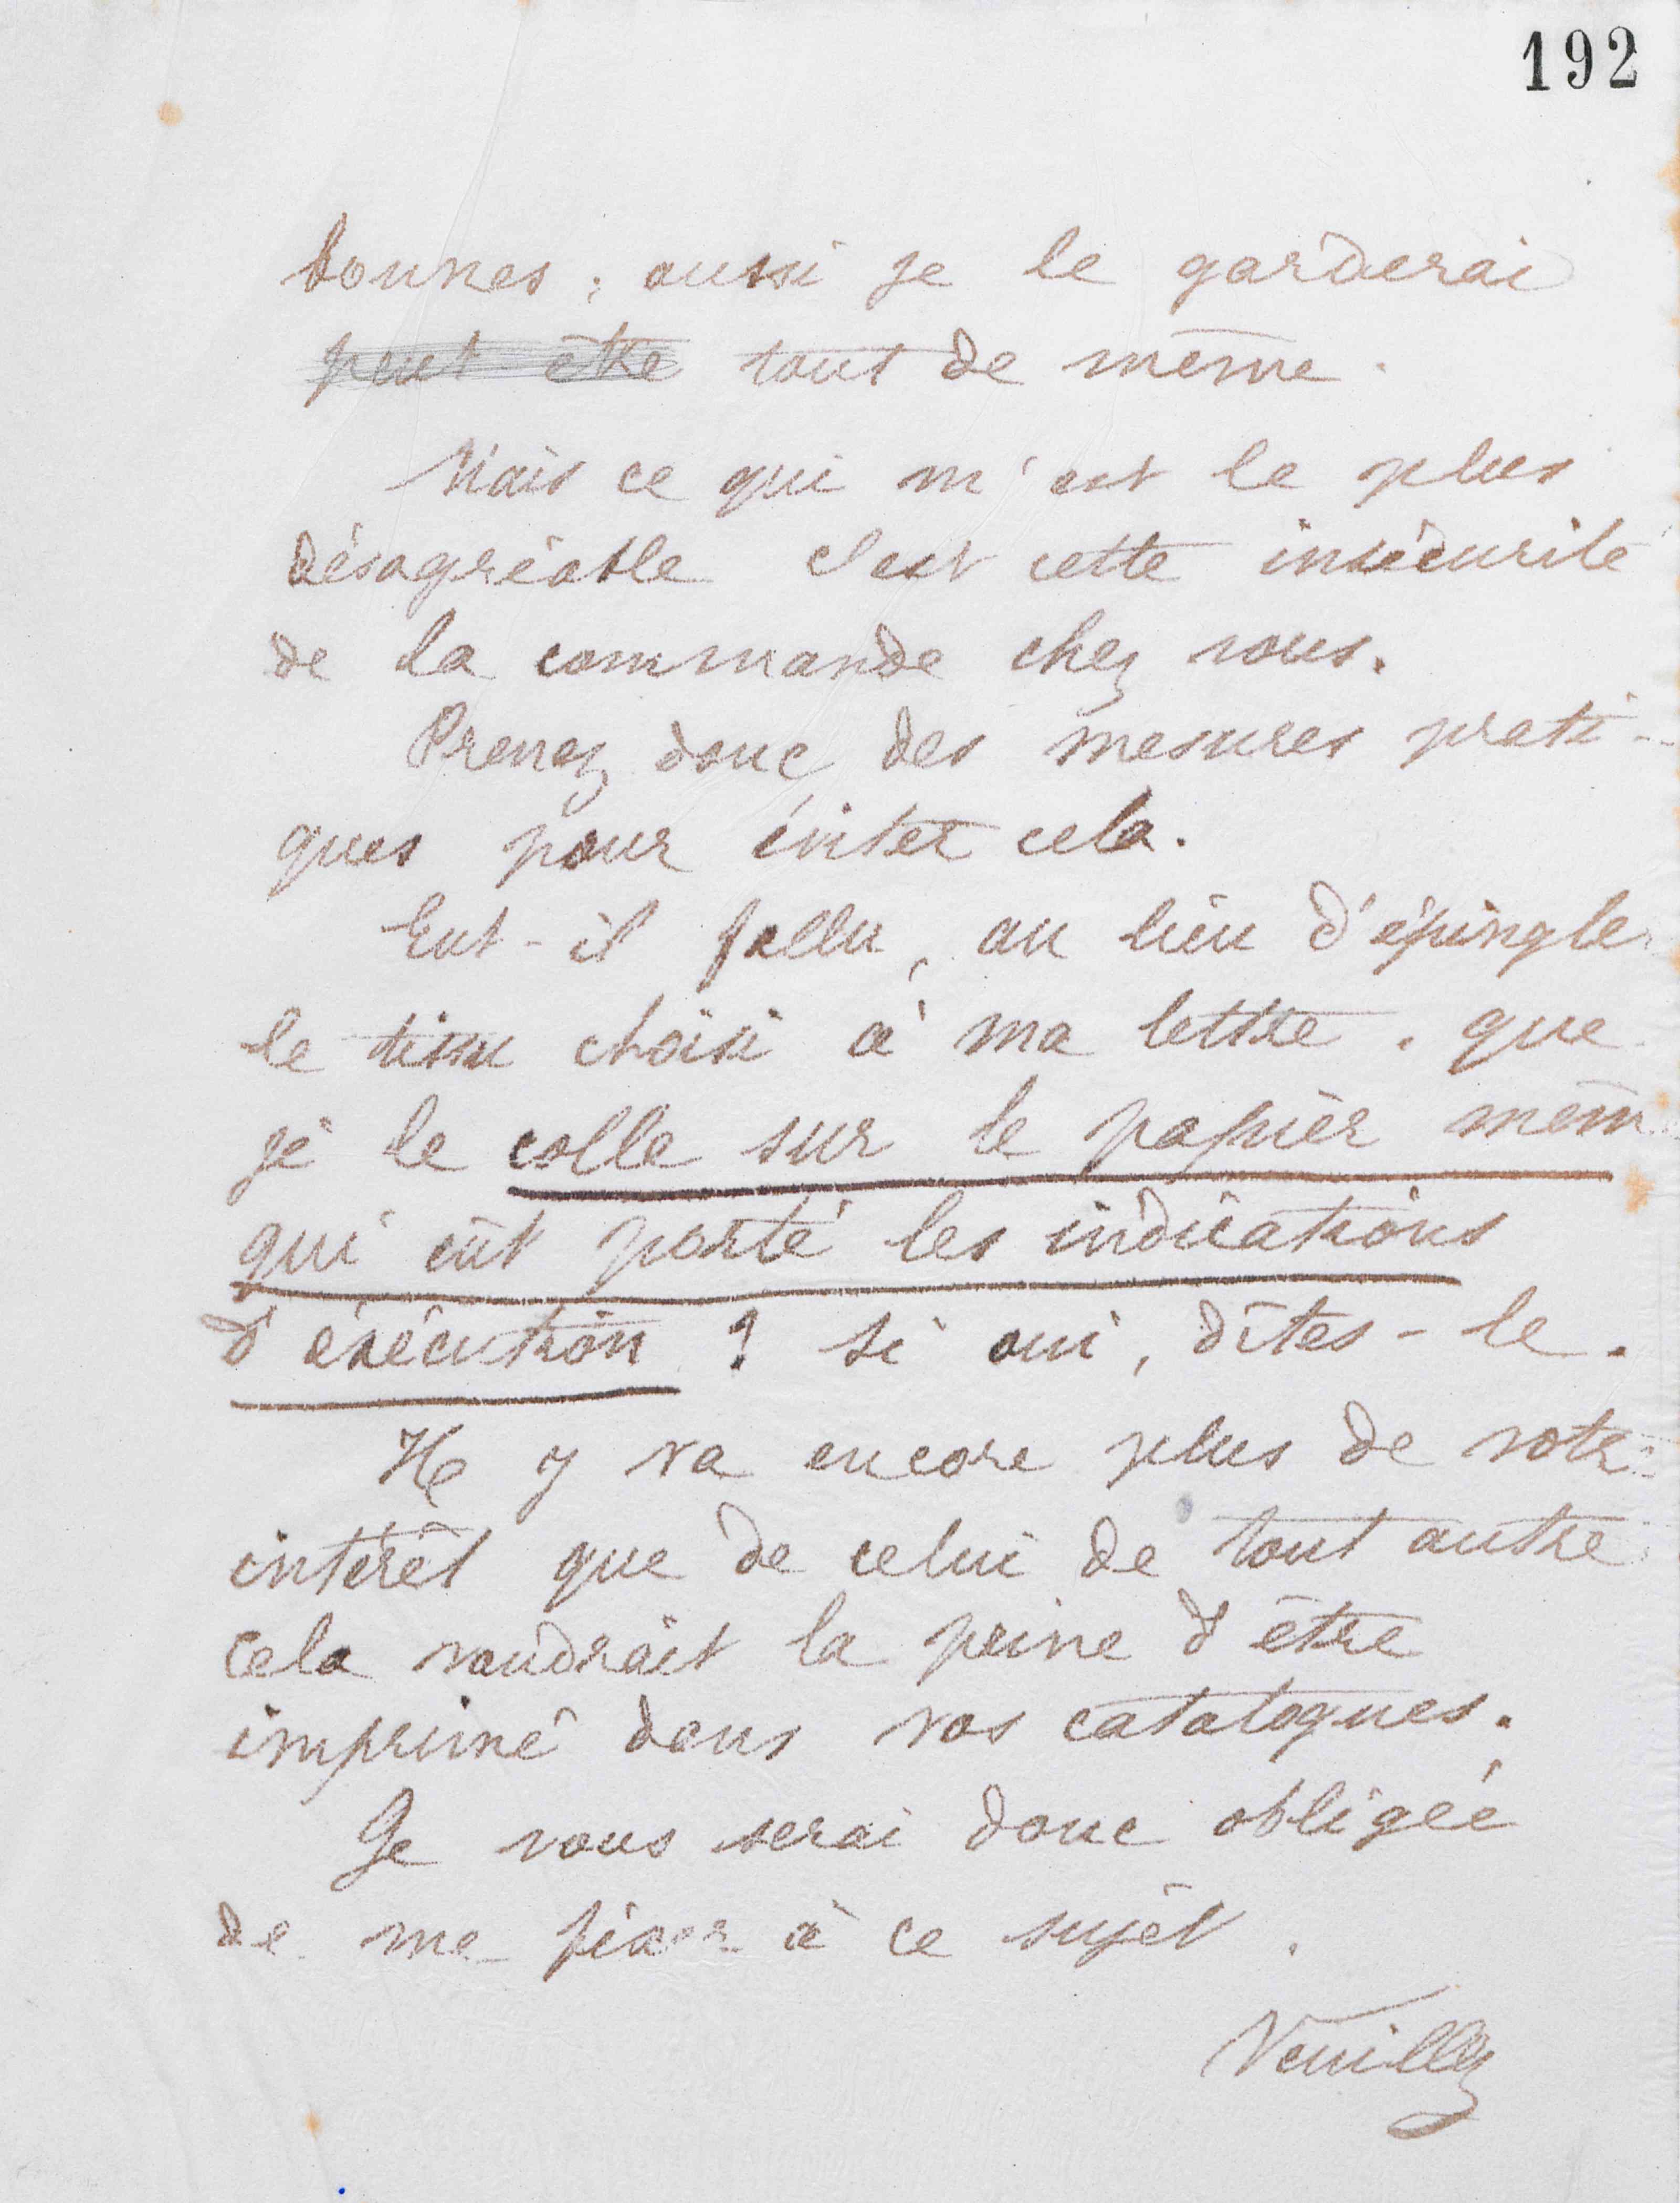 192
bonnes ; aussi je le garderai
peut être tout de même.
Mais ce qui m'est le plus
désagréable c'est cette insécurité
de la commande chez vous.
Prenez donc des mesures prati-
ques pour éviter cela.
Eut-il fallu, au lieu d'épingle
le tissu choisi à ma lettre, que
je le colle sur le papier mêm
qui eût porté les indications
d'éxécution ? si oui, dîtes-le.
Il y va encore plus de votr
intérêt que de celui de tout autre
Cela vaudrait la peine d'être
imprimé dans vos catalogues.
Je vous serai donc obligée
de me fixer à ce sujet.
Veuillez